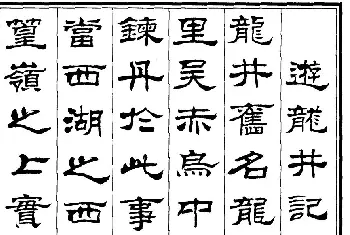 遊龍井記
龍井舊名龍
里吳赤烏中
鍊丹於此事
當西湖之西
篁嶺之上實